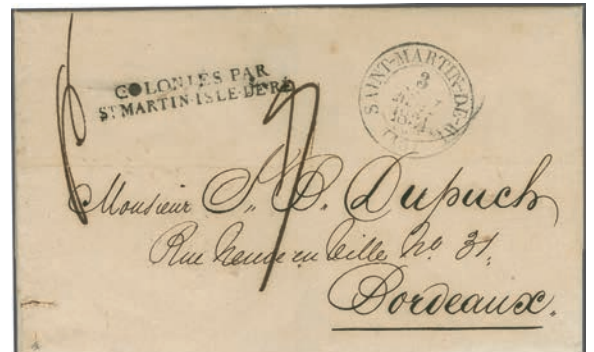 COLONIES PAR
ST MARTIN-ISLE-DE-RÉ
SAINT-MARTIN-DE-RÉ
3
Monsieur S. B. Dupuch
Rue Neuve en Ville No 31,
Bordeaux.